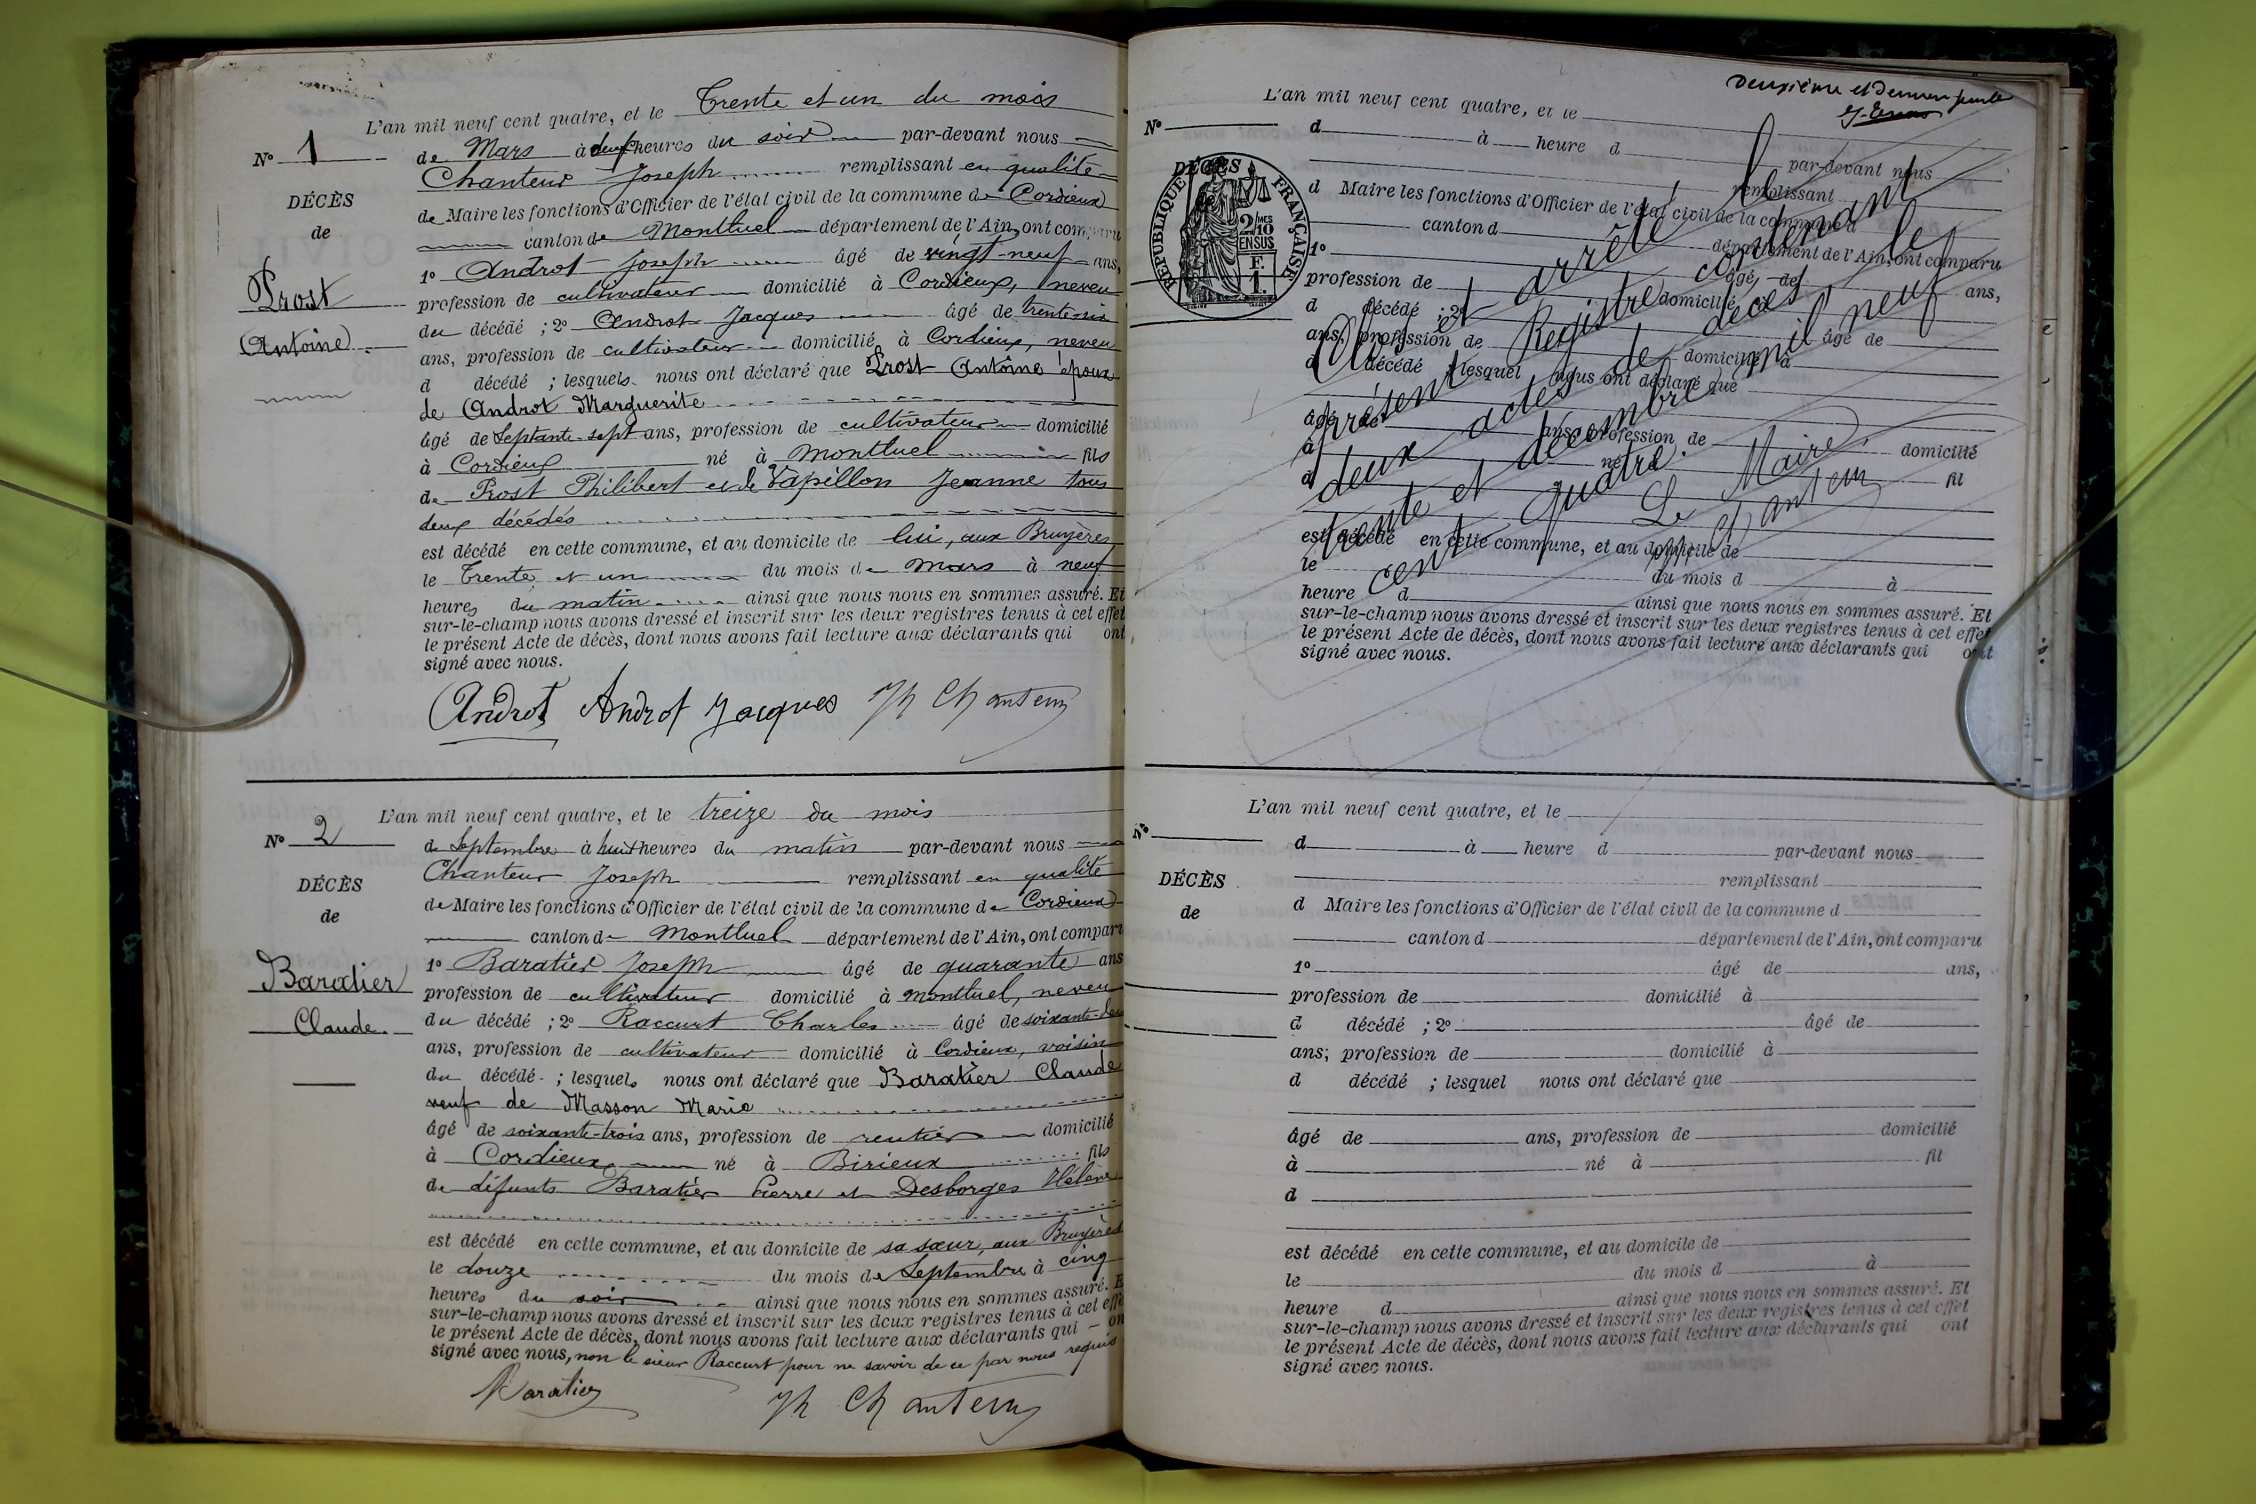 L'an mil neuf cent quatre, et le Trente et un du mois
N° 1
de Mars à heures du soir par-devant nous
Chanteur Joseph remplissant en qualité
DÉCÈS
de Maire les fonctions d'Officier de l'état civil de la commune de Cordieux
de
canton de Montluel département de l'Ain, ont comparu
1° Androt Joseph âgé de vingt-neuf ans,
Prost
profession de cultivateur domicilié à Cordieux, neveu
du décédé ; 2° Androt Jacques âgé de trente-six
Antoine
ans, profession de cultivateur domicilié à Cordieux, neveu
d décédé ; lesquels nous ont déclaré que Prost Antoine époux
de Androt Marguerite
âgé de Septante-sept ans, profession de cultivateur domicilié
à Cordieux né à Montluel fils
de Prost Philibert et de Papillon Jeanne tous
deux décédés
est décédé en cette commune, et au domicile de lui, aux Bruyères
le Trente et un du mois de Mars à neuf
heures du matin ainsi que nous nous en sommes assuré. Et
sur-le-champ nous avons dressé et inscrit sur les deux registres tenus à cet effet
le présent Acte de décès, dont nous avons fait lecture aux déclarants qui ont
signé avec nous.
Androt Androt Jacques Jh Chanteur
L'an mil neuf cent quatre, et le treize du mois
N° 2
de Septembre à huit heures du matin par-devant nous
Chanteur Joseph remplissant en qualité
DÉCÈS
de Maire les fonctions d'Officier de l'état civil de la commune de Cordieux
de
canton de Montluel département de l'Ain, ont comparu
1° Baratier Joseph âgé de quarante ans
Baratier
profession de cultivateur domicilié à Montluel, neveu
Claude
du décédé ; 2° Raccurt Charles âgé de soixante-deux
ans, profession de cultivateur domicilié à Cordieux, voisin
du décédé ; lesquels nous ont déclaré que Baratier Claude
veuf de Masson Marie
âgé de soixante-trois ans, profession de rentier domicilié
à Cordieux né à Birieux fils
de défunts Baratier Pierre et Desborges Hélène
est décédé en cette commune, et au domicile de sa sœur, aux Bruyères
le douze du mois de Septembre à cinq
heures du soir ainsi que nous nous en sommes assuré. E
sur-le-champ nous avons dressé et inscrit sur les deux registres tenus à cet effe
le présent Acte de décès, dont nous avons fait lecture aux déclarants qui on
signé avec nous, non le sieur Raccurt pour ne savoir de ce par nous requis
Baratier Jh Chanteur
Deuxième et dernier feuille
L'an mil neuf cent quatre, et le
N°
d à heure d par-devant nous
remplissant
DÉCÈS
de
RÉPUBLIQUE FRANÇAISE
2/10 MES
EN SUS
F.
1
d Maire les fonctions d'Officier de l'état civil de la commune d
canton d département de l'Ain, ont comparu
1° âgé de ans,
profession de domicilié à
d décédé ; 2° âgé de
ans, profession de domicilié à
d décédé ; lesquel nous ont déclaré que
âgé de ans, profession de domicilié
à né à fil
d
est décédé en cette commune, et au domicile de
le du mois d à
heure d ainsi que nous nous en sommes assuré. Et
sur-le-champ nous avons dressé et inscrit sur les deux registres tenus à cet effet
le présent Acte de décès, dont nous avons fait lecture aux déclarants qui ont
signé avec nous.
Clos et arrêté le
présent Registre contenant
deux actes de décès le
trente et décembre mil neuf
cent quatre.
Le Maire,
Jh Chanteur
L'an mil neuf cent quatre, et le
N°
d à heure d par-devant nous
remplissant
DÉCÈS
de
d Maire les fonctions d'Officier de l'état civil de la commune d
canton d département de l'Ain, ont comparu
1° âgé de ans,
profession de domicilié à
d décédé ; 2° âgé de
ans; profession de domicilié à
d décédé ; lesquel nous ont déclaré que
âgé de ans, profession de domicilié
à né à fil
d
est décédé en cette commune, et au domicile de
le du mois d à
heure d ainsi que nous nous en sommes assuré. Et
sur-le-champ nous avons dressé et inscrit sur les deux registres tenus à cet effet
le présent Acte de décès, dont nous avons fait lecture aux déclarants qui ont
signé avec nous.